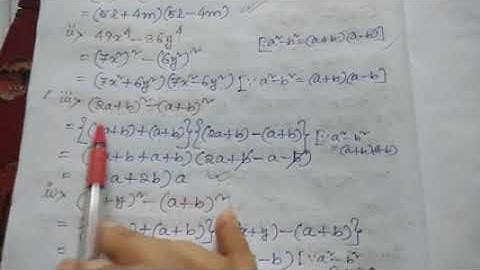 = (5l+4m)(5l-4m)
ii> 49x⁴-36y⁴ [a²-b²=(a+b)(a-b)]
= (7x²)²-(6y²)²
= (7x²+6y²)(7x²-6y²) [∵a²-b²=(a+b)(a-b)]
iii> (2a+b)²-(a+b)²
= {(2a+b)+(a+b)}{(2a+b)-(a+b)} [∵a²-b²=(a+b)(a-b)
= (a+b+a+b)(2a+b-a-b)
= a+2b)a
iv> +y)²-(a+b)²
= +(a+b)} +y)-(a+b)}
= -b) [∵a²-b²